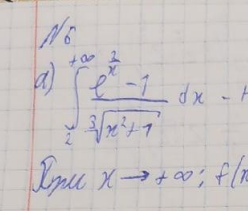 N6
a) ∫₂^{+∞} (e^{2/x} - 1) / ∛(x²+1) dx -
При x → +∞: f(x